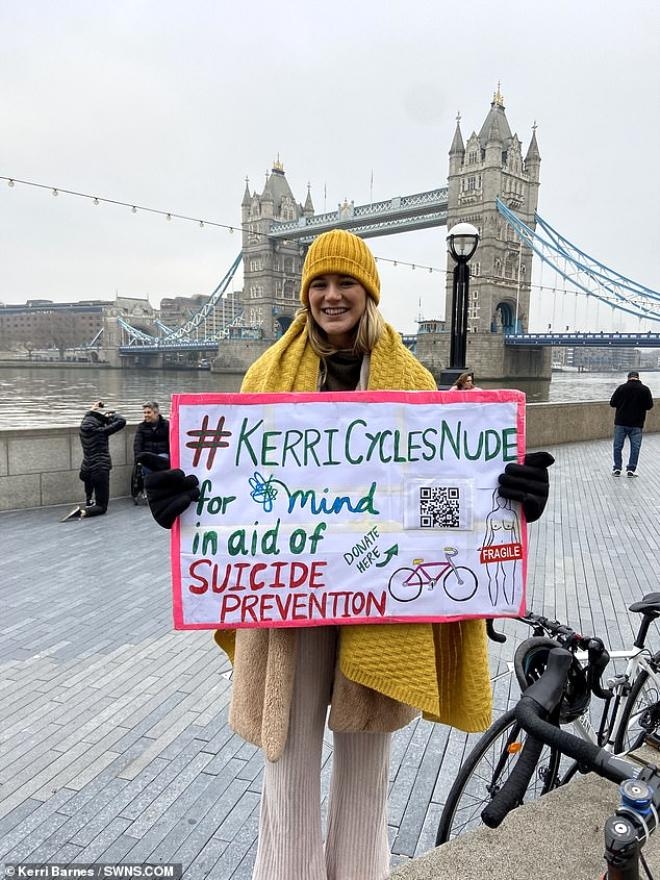 #KERRICYCLESNUDE
for mind
in aid of
SUICIDE
PREVENTION
DONATE
HERE
FRAGILE
© Kerri Barnes / SWNS.COM